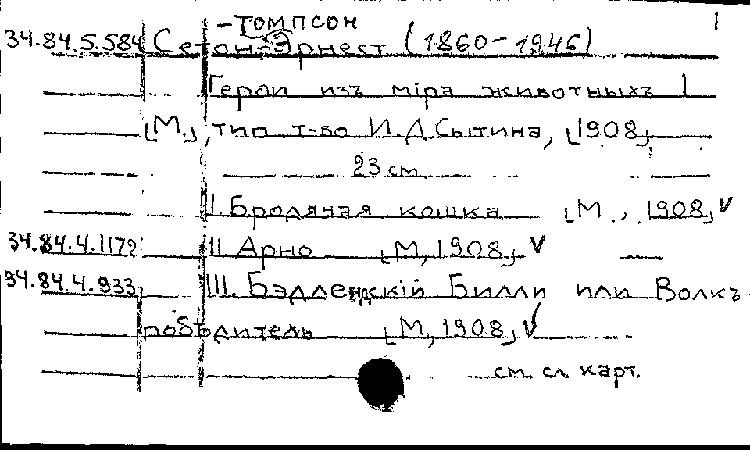 -ТОМПСОН 1
34.84.5.584 Сетон-Эрнест (1860-1946)
Герои изъ міра животныхъ 1
[М.], тип т-во И.Д.Сытина, [1908]
23 см
I. Бродячая кошка [М., 1908] V
34.84.4.1172 II Арно [М, 1908] V
34.84.4.933 III. Бэдлендскій Билли или Волкъ-
побѣдитель [М, 1908] V
см. сл карт.